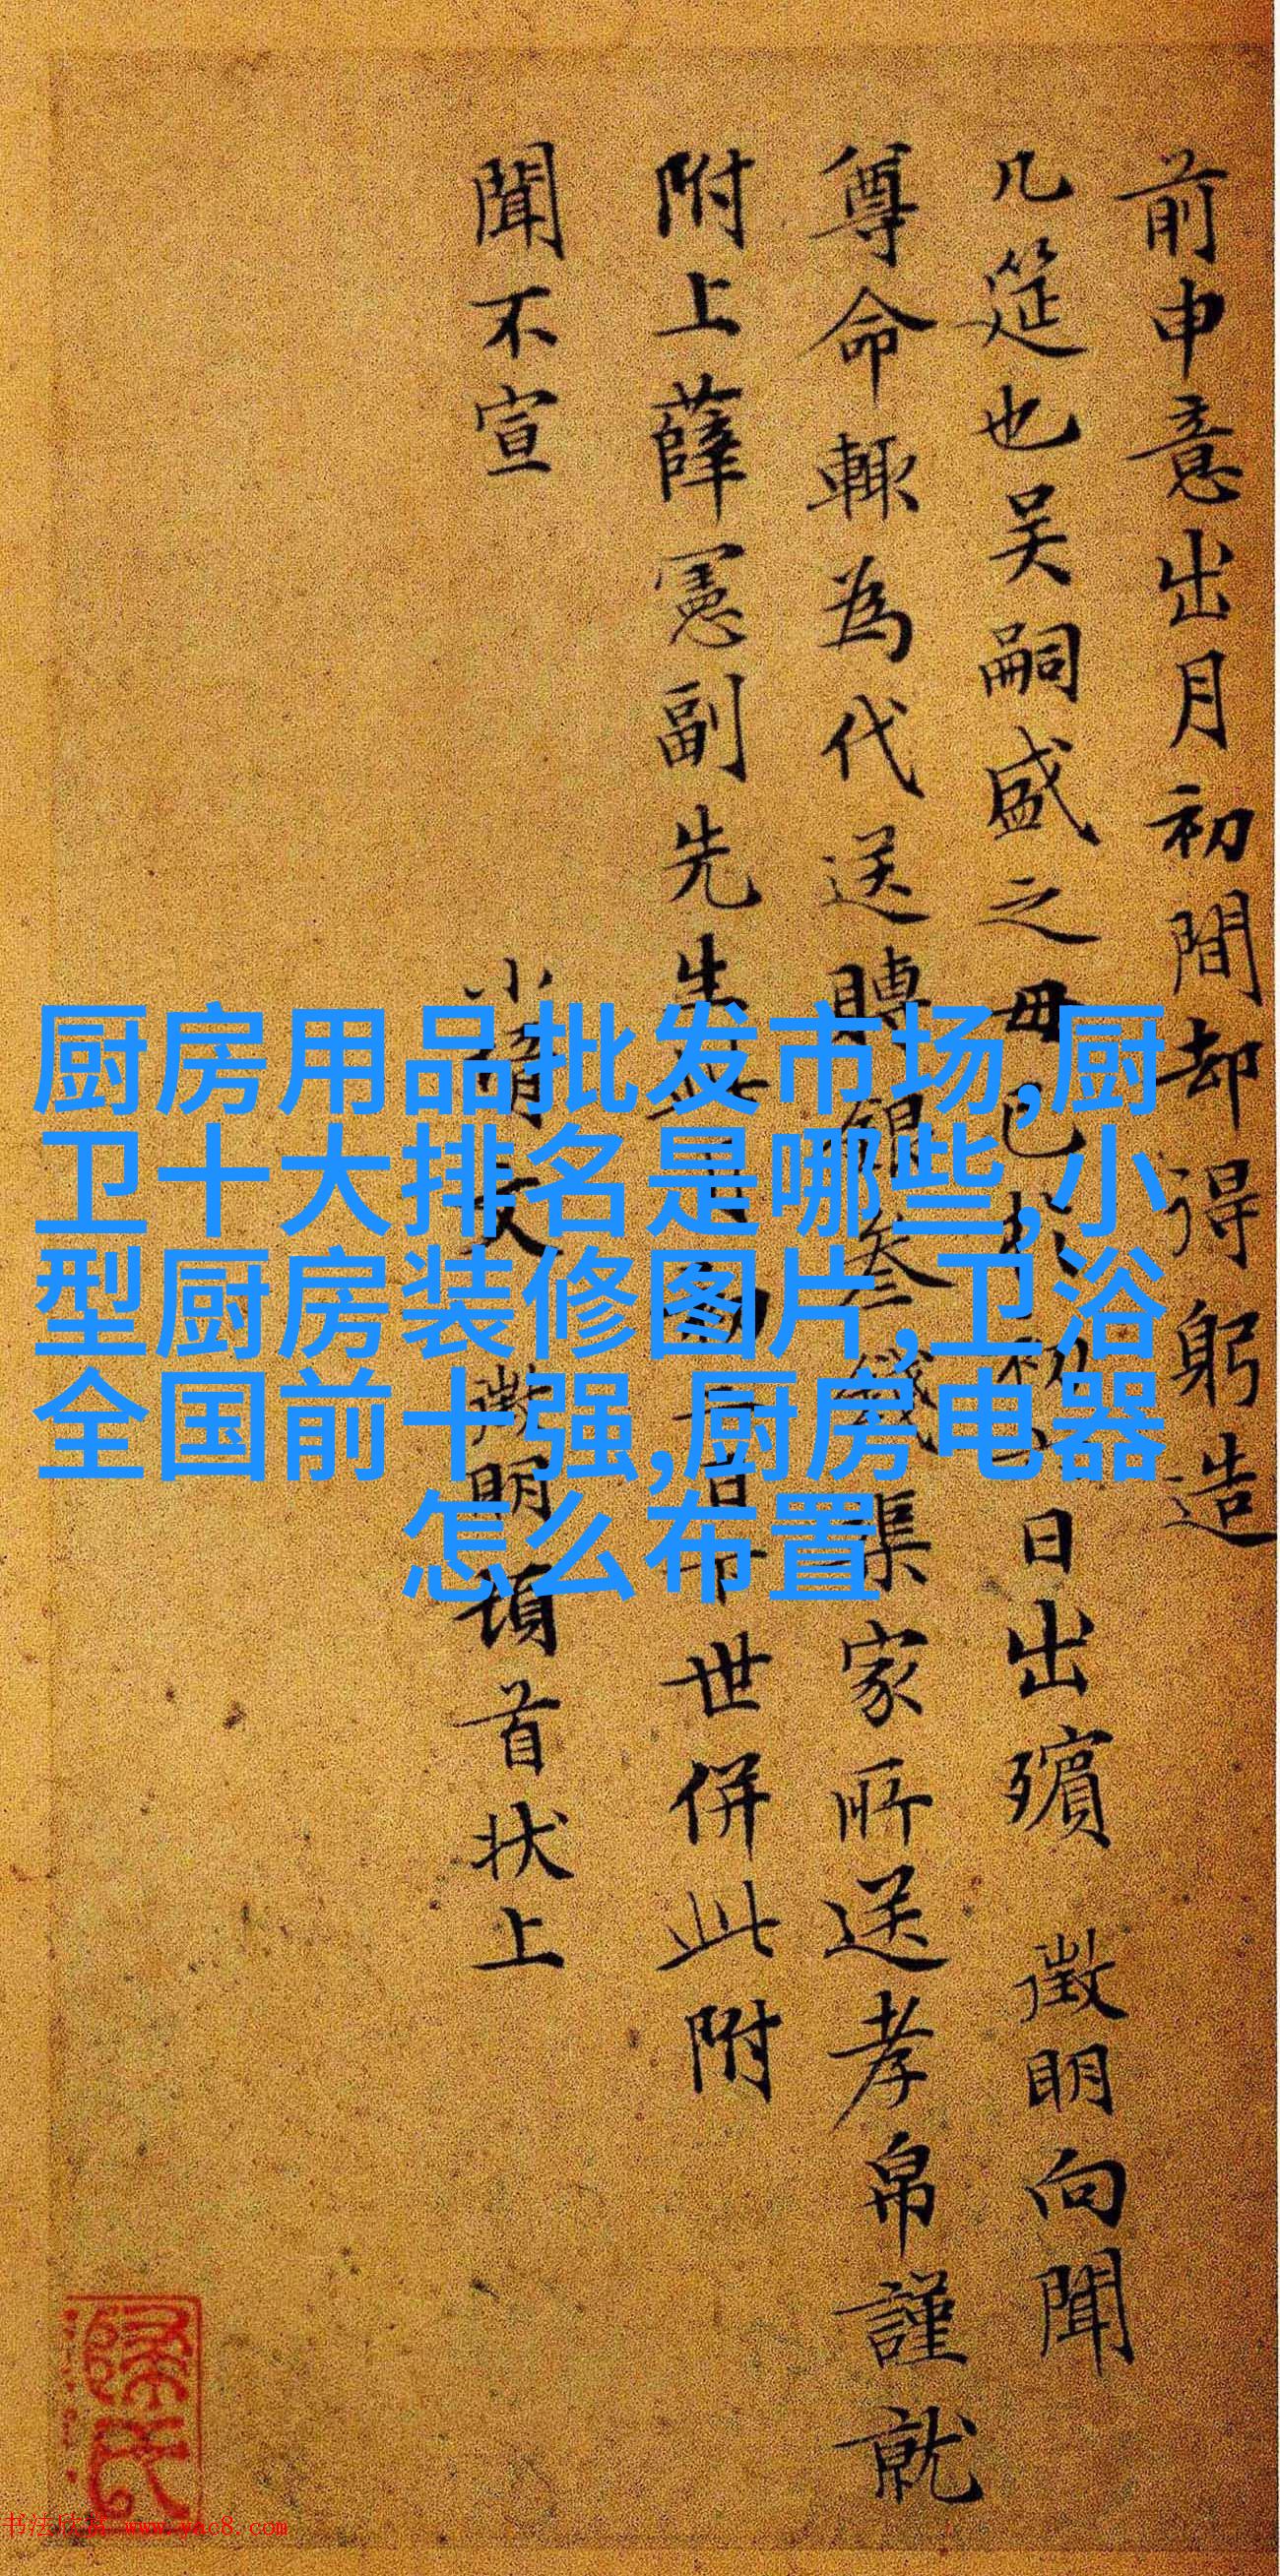 前申意出月初間却得躬造
几筵也吴嗣盛之毋已於初日出殯 徵明向聞
尊命輒為代送賻銀叁錢渠家所送孝帛謹就
附上薛憲副先生世併此附
聞不宣
小壻文徵明頓首狀上
厨房用品批发市场,厨
卫十大排名是哪些,小
型厨房装修图片,卫浴
全国前十强,厨房电器
怎么布置
书法欣赏 www.yac8.com